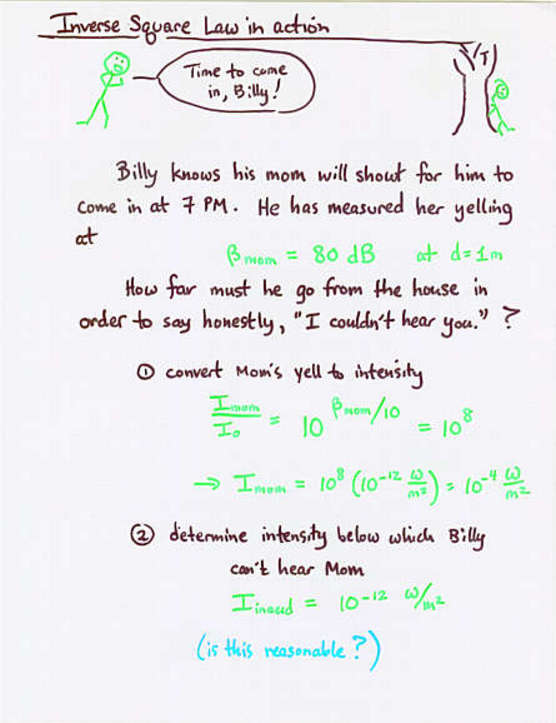 Inverse Square Law in action
Time to come
in, Billy!
Billy knows his mom will shout for him to
come in at 7 PM. He has measured her yelling
at
β mom = 80 dB at d=1m
How far must he go from the house in
order to say honestly, "I couldn't hear you." ?
① convert Mom's yell to intensity
I mom / I₀ = 10^(β mom/10) = 10⁸
→ I mom = 10⁸ (10⁻¹² W/m²) = 10⁻⁴ W/m²
② determine intensity below which Billy
can't hear Mom
I inaud = 10⁻¹² W/m²
(is this reasonable?)